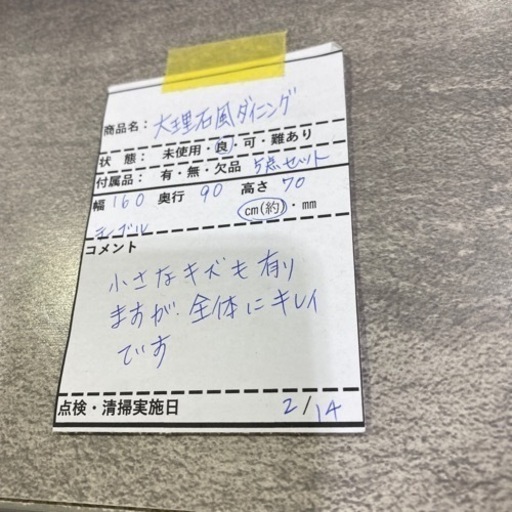 商品名：大理石風ダイニング
状　態：　未使用・良・可・難あり
付属品：　有・無・欠品　5点セット
幅 160　奥行 90　高さ 70
cm(約)・mm
テーブル
コメント
小さなキズも有り
ますが、全体にキレイ
です
点検・清掃実施日　2/14